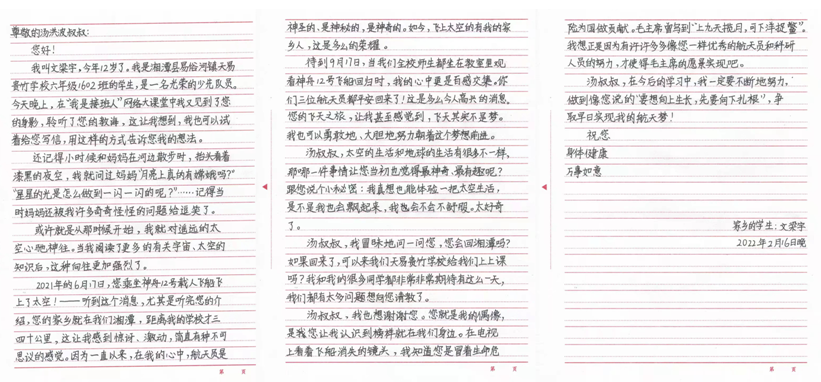 尊敬的汤洪波叔叔：
您好！
我叫文梁宇，今年12岁了。我是湘潭县易俗河镇天易
贵竹学校六年级1602班的学生，是一名光荣的少先队员。
今天晚上，在“我是接班人”网络大课堂中我又见到了您
的身影，聆听了您的教诲，这让我想到，我也可以试
着给您写信，用这样的方式告诉您我的想法。
还记得小时候和妈妈在河边散步时，抬头看着
漆黑的夜空，我就问过妈妈“月亮上真的有嫦娥吗？”
“星星的光是怎么做到一闪一闪的呢？”……记得当
时妈妈还被我许多奇奇怪怪的问题给逗笑了。
或许就是从那时候开始，我就对遥远的太
空心驰神往。当我阅读了更多的有关宇宙、太空的
知识后，这种向往更加强烈了。
2021年的6月17日，您乘坐神舟12号载人飞船飞
上了太空！——听到这个消息，尤其是听完您的介
绍，您的家乡就在我们湘潭，距离我的学校才三
四十公里，这让我感到惊讶、激动，简直有种不可
思议的感觉。因为一直以来，在我的心中，航天员是
神圣的、是神秘的，是神奇的。如今，飞上太空的有我的家
乡人，这是多么的荣耀。
待到9月17日，当我们全校师生都坐在教室里观
看神舟12号飞船回归时，我的心中更是百感交集。你
们三位航天员都平安回来了！这是多么令人高兴的消息。
您的飞天之旅，让我甚至感觉到，飞天其实不是梦。
我也可以勇敢地、大胆地努力朝着这个梦想前进。
汤叔叔，太空的生活和地球的生活有很多不一样，
那哪一件事情让您当初觉得最神奇、最有趣呢？
跟您说个小秘密：我真想也能体验一把太空生活，
是不是我也会飘起来，我也会不会不耐烦。太好奇
了。
汤叔叔，我冒昧地问一问您，您会回湘潭吗？
如果回来了，可以来我们天易贵竹学校给我们上上课
吗？我和我的很多同学都非常非常期待有这么一天，
我们都有太多问题想向您请教了。
汤叔叔，我也想谢谢您。您就是我的偶像，
是您让我认识到榜样就在我们身边。在电视
上看着飞船消失的镜头，我知道您是冒着生命危
险为国做贡献。毛主席曾写到“上九天揽月，可下洋捉鳖”。
我想正是因为有许许多多像您一样优秀的航天员和科研
人员的努力，才使得毛主席的愿景实现吧。
汤叔叔，在今后的学习中，我一定要不断地努力，
做到像您说的“要想向上生长，先要向下扎根”，争
取早日实现我的航天梦！
祝您
身体健康
万事如意
家乡的学生：文梁宇
2022年2月16日晚
第 页
第 页
第 页